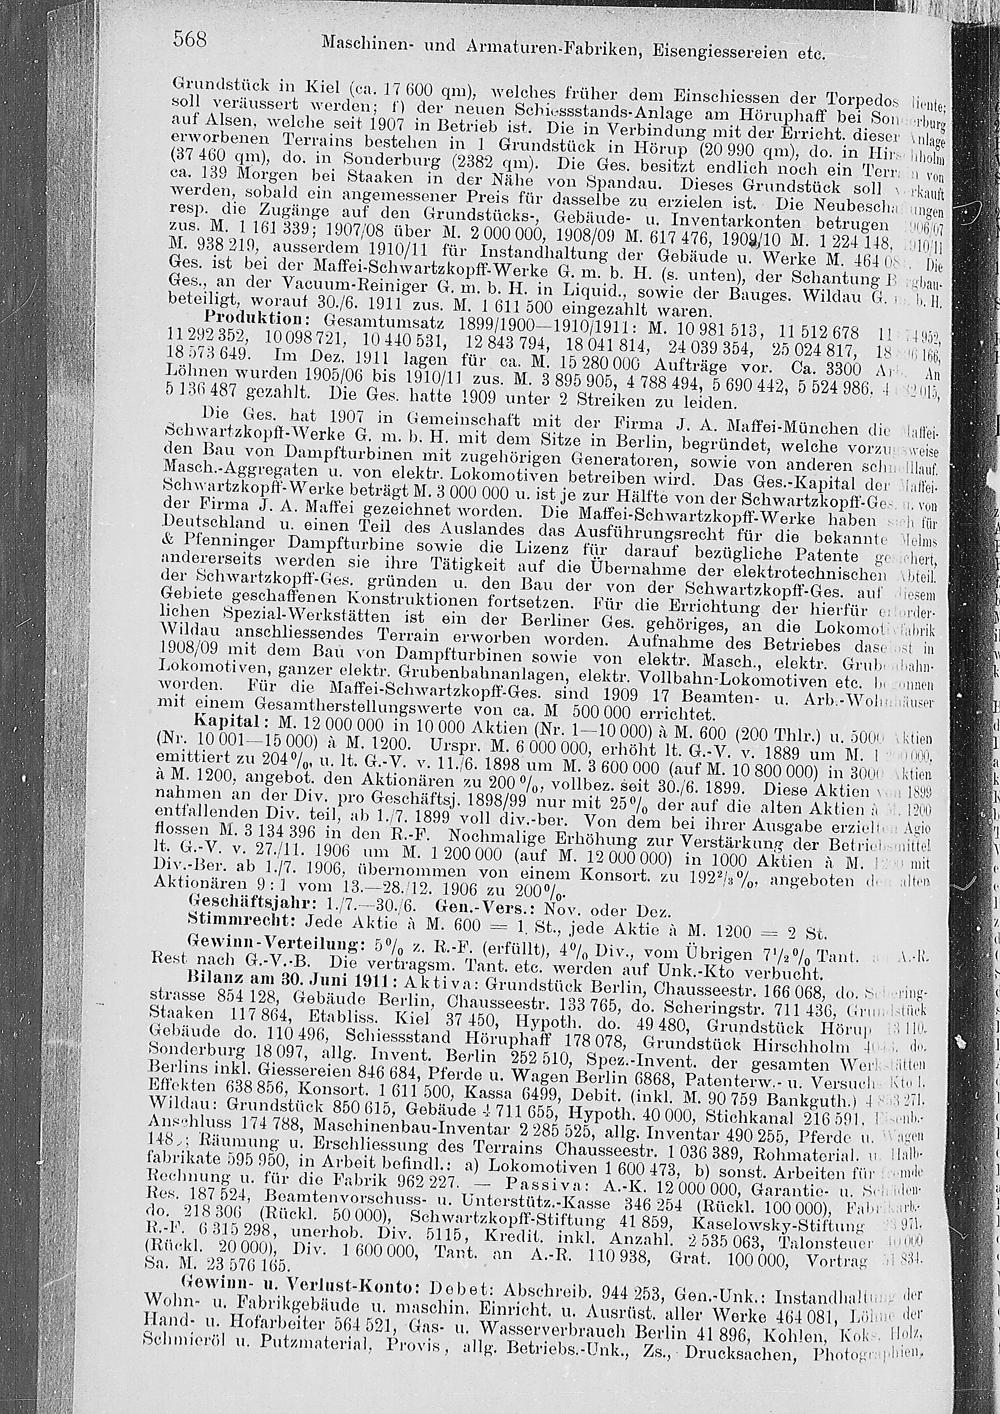 568
Maschinen- und Armaturen-Fabriken, Eisengiessereien etc.
Grundstück in Kiel (ca. 17 600 qm), welches früher dem Einschiessen der Torpedos diente;
soll veräussert werden; f) der neuen Schiessstands-Anlage am Höruphaff bei Sonderburg
auf Alsen, welche seit 1907 in Betrieb ist. Die in Verbindung mit der Erricht. dieser Anlage
erworbenen Terrains bestehen in 1 Grundstück in Hörup (20 990 qm), do. in Hirschholm
(37 460 qm), do. in Sonderburg (2382 qm). Die Ges. besitzt endlich noch ein Terrain von
ca. 139 Morgen bei Staaken in der Nähe von Spandau. Dieses Grundstück soll verkauft
werden, sobald ein angemessener Preis für dasselbe zu erzielen ist. Die Neubeschaffungen
resp. die Zugänge auf den Grundstücks-, Gebäude- u. Inventarkonten betrugen 1906/07
zus. M. 1 161 339; 1907/08 über M. 2 000 000, 1908/09 M. 617 476, 1909/10 M. 1 224 148, 1910/11
M. 938 219, ausserdem 1910/11 für Instandhaltung der Gebäude u. Werke M. 464 081. Die
Ges. ist bei der Maffei-Schwartzkopff-Werke G. m. b. H. (s. unten), der Schantung Bergbau-
Ges., an der Vacuum-Reiniger G. m. b. H. in Liquid., sowie der Bauges. Wildau G. m. b. H.
beteiligt, worauf 30./6. 1911 zus. M. 1 611 500 eingezahlt waren.
Produktion: Gesamtumsatz 1899/1900—1910/1911: M. 10 981 513, 11 512 678
11 292 352, 10 098 721, 10 440 531, 12 843 794, 18 041 814, 24 039 354, 25 024 817,
18 573 649. Im Dez. 1911 lagen für ca. M. 15 280 000 Aufträge vor. Ca. 3300 Arb. An
Löhnen wurden 1905/06 bis 1910/11 zus. M. 3 895 905, 4 788 494, 5 690 442, 5 524 986,
5 136 487 gezahlt. Die Ges. hatte 1909 unter 2 Streiken zu leiden.
Die Ges. hat 1907 in Gemeinschaft mit der Firma J. A. Maffei-München die Maffei-
Schwartzkopff-Werke G. m. b. H. mit dem Sitze in Berlin, begründet, welche vorzugsweise
den Bau von Dampfturbinen mit zugehörigen Generatoren, sowie von anderen schnelllauf.
Masch.-Aggregaten u. von elektr. Lokomotiven betreiben wird. Das Ges.-Kapital der Maffei-
Schwartzkopff-Werke beträgt M. 3 000 000 u. ist je zur Hälfte von der Schwartzkopff-Ges. u. von
der Firma J. A. Maffei gezeichnet worden. Die Maffei-Schwartzkopff-Werke haben sich für
Deutschland u. einen Teil des Auslandes das Ausführungsrecht für die bekannte Melms
& Pfenninger Dampfturbine sowie die Lizenz für darauf bezügliche Patente gesichert,
andererseits werden sie ihre Tätigkeit auf die Übernahme der elektrotechnischen Abteil.
der Schwartzkopff-Ges. gründen u. den Bau der von der Schwartzkopff-Ges. auf diesem
Gebiete geschaffenen Konstruktionen fortsetzen. Für die Errichtung der hierfür erforder-
lichen Spezial-Werkstätten ist ein der Berliner Ges. gehöriges, an die Lokomotivfabrik
Wildau anschliessendes Terrain erworben worden. Aufnahme des Betriebes daselbst in
1908/09 mit dem Bau von Dampfturbinen sowie von elektr. Masch., elektr. Grubenbahn-
Lokomotiven, ganzer elektr. Grubenbahnanlagen, elektr. Vollbahn-Lokomotiven etc. begonnen
worden. Für die Maffei-Schwartzkopff-Ges. sind 1909 17 Beamten- u. Arb.-Wohnhäuser
mit einem Gesamtherstellungswerte von ca. M 500 000 errichtet.
Kapital: M. 12 000 000 in 10 000 Aktien (Nr. 1—10 000) à M. 600 (200 Thlr.) u. 5000 Aktien
(Nr. 10 001—15 000) à M. 1200. Urspr. M. 6 000 000, erhöht lt. G.-V. v. 1889 um M. 1 200 000,
emittiert zu 204%, u. lt. G.-V. v. 11./6. 1898 um M. 3 600 000 (auf M. 10 800 000) in 3000 Aktien
à M. 1200, angebot. den Aktionären zu 200%, vollbez. seit 30./6. 1899. Diese Aktien 1899
nahmen an der Div. pro Geschäftsj. 1898/99 nur mit 25% der auf die alten Aktien à M. 1200
entfallenden Div. teil, ab 1./7. 1899 voll div.-ber. Von dem bei ihrer Ausgabe erzielten Agio
flossen M. 3 134 396 in den R.-F. Nochmalige Erhöhung zur Verstärkung der Betriebsmittel
lt. G.-V. v. 27./11. 1906 um M. 1 200 000 (auf M. 12 000 000) in 1000 Aktien à M. 1200 mit
Div.-Ber. ab 1./7. 1906, übernommen von einem Konsort. zu 192⅔%, angeboten den alten
Aktionären 9 : 1 vom 13.—28./12. 1906 zu 200%.
Geschäftsjahr: 1./7.—30./6. Gen.-Vers.: Nov. oder Dez.
Stimmrecht: Jede Aktie à M. 600 = 1 St., jede Aktie à M. 1200 = 2 St.
Gewinn-Verteilung: 5% z. R.-F. (erfüllt), 4% Div., vom Übrigen 7½% Tant. A.-R.
Rest nach G.-V.-B. Die vertragsm. Tant. etc. werden auf Unk.-Kto verbucht.
Bilanz am 30. Juni 1911: Aktiva: Grundstück Berlin, Chausseestr. 166 068, do. Schering-
strasse 854 128, Gebäude Berlin, Chausseestr. 133 765, do. Scheringstr. 711 436, Grundstück
Staaken 117 864, Etabliss. Kiel 37 450, Hypoth. do. 49 480, Grundstück Hörup
Gebäude do. 110 496, Schiessstand Höruphaff 178 078, Grundstück Hirschholm do.
Sonderburg 18 097, allg. Invent. Berlin 252 510, Spez.-Invent. der gesamten Werkstätten
Berlins inkl. Giessereien 846 684, Pferde u. Wagen Berlin 6868, Patenterw.- u. Versuch-Kto 1,
Effekten 638 856, Konsort. 1 611 500, Kassa 6499, Debit. (inkl. M. 90 759 Bankguth.)
Wildau: Grundstück 850 615, Gebäude 4 711 655, Hypoth. 40 000, Stichkanal 216 591, Eisenb.-
Anschluss 174 788, Maschinenbau-Inventar 2 285 525, allg. Inventar 490 255, Pferde u. Wagen
Räumung u. Erschliessung des Terrains Chausseestr. 1 036 389, Rohmaterial. u. Halb-
fabrikate 595 950, in Arbeit befindl.: a) Lokomotiven 1 600 473, b) sonst. Arbeiten für fremde
Rechnung u. für die Fabrik 962 227. — Passiva: A.-K. 12 000 000, Garantie- u. Schäden-
Res. 187 524, Beamtenvorschuss- u. Unterstütz.-Kasse 346 254 (Rückl. 100 000), Fabrikarb.-
do. 218 306 (Rückl. 50 000), Schwartzkopff-Stiftung 41 859, Kaselowsky-Stiftung
R.-F. 6 315 298, unerhob. Div. 5115, Kredit. inkl. Anzahl. 2 535 063, Talonsteuer 40 000
(Rückl. 20 000), Div. 1 600 000, Tant. an A.-R. 110 938, Grat. 100 000, Vortrag
Sa. M. 23 576 165.
Gewinn- u. Verlust-Konto: Debet: Abschreib. 944 253, Gen.-Unk.: Instandhaltung der
Wohn- u. Fabrikgebäude u. maschin. Einricht. u. Ausrüst. aller Werke 464 081, Löhne der
Hand- u. Hofarbeiter 564 521, Gas- u. Wasserverbrauch Berlin 41 896, Kohlen, Koks, Holz,
Schmieröl u. Putzmaterial, Provis., allg. Betriebs.-Unk., Zs., Drucksachen, Photographien,